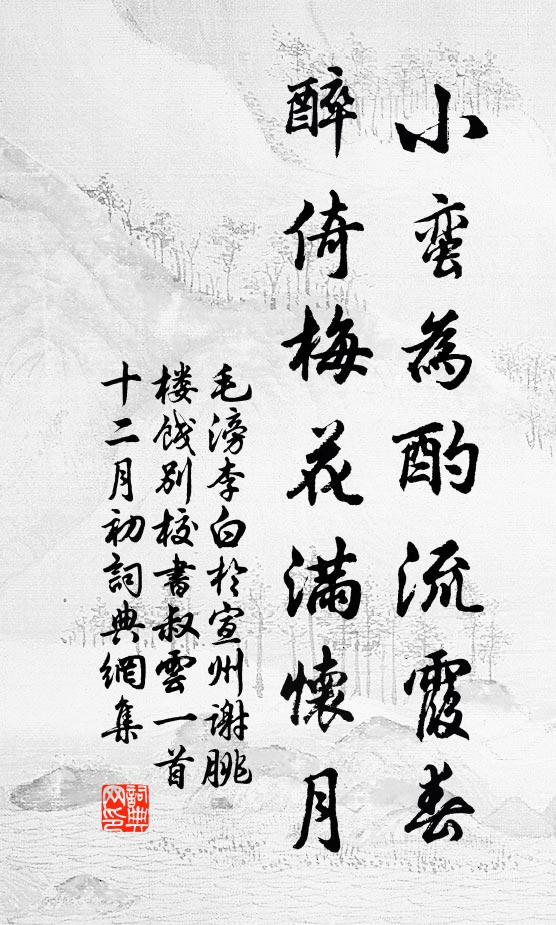 小蛮為酌流霞春
醉倚梅花満懷月
毛滂李白於宣州谢脁
楼饯别校書叔雲一首
十二月初詞典網集
詞典网印